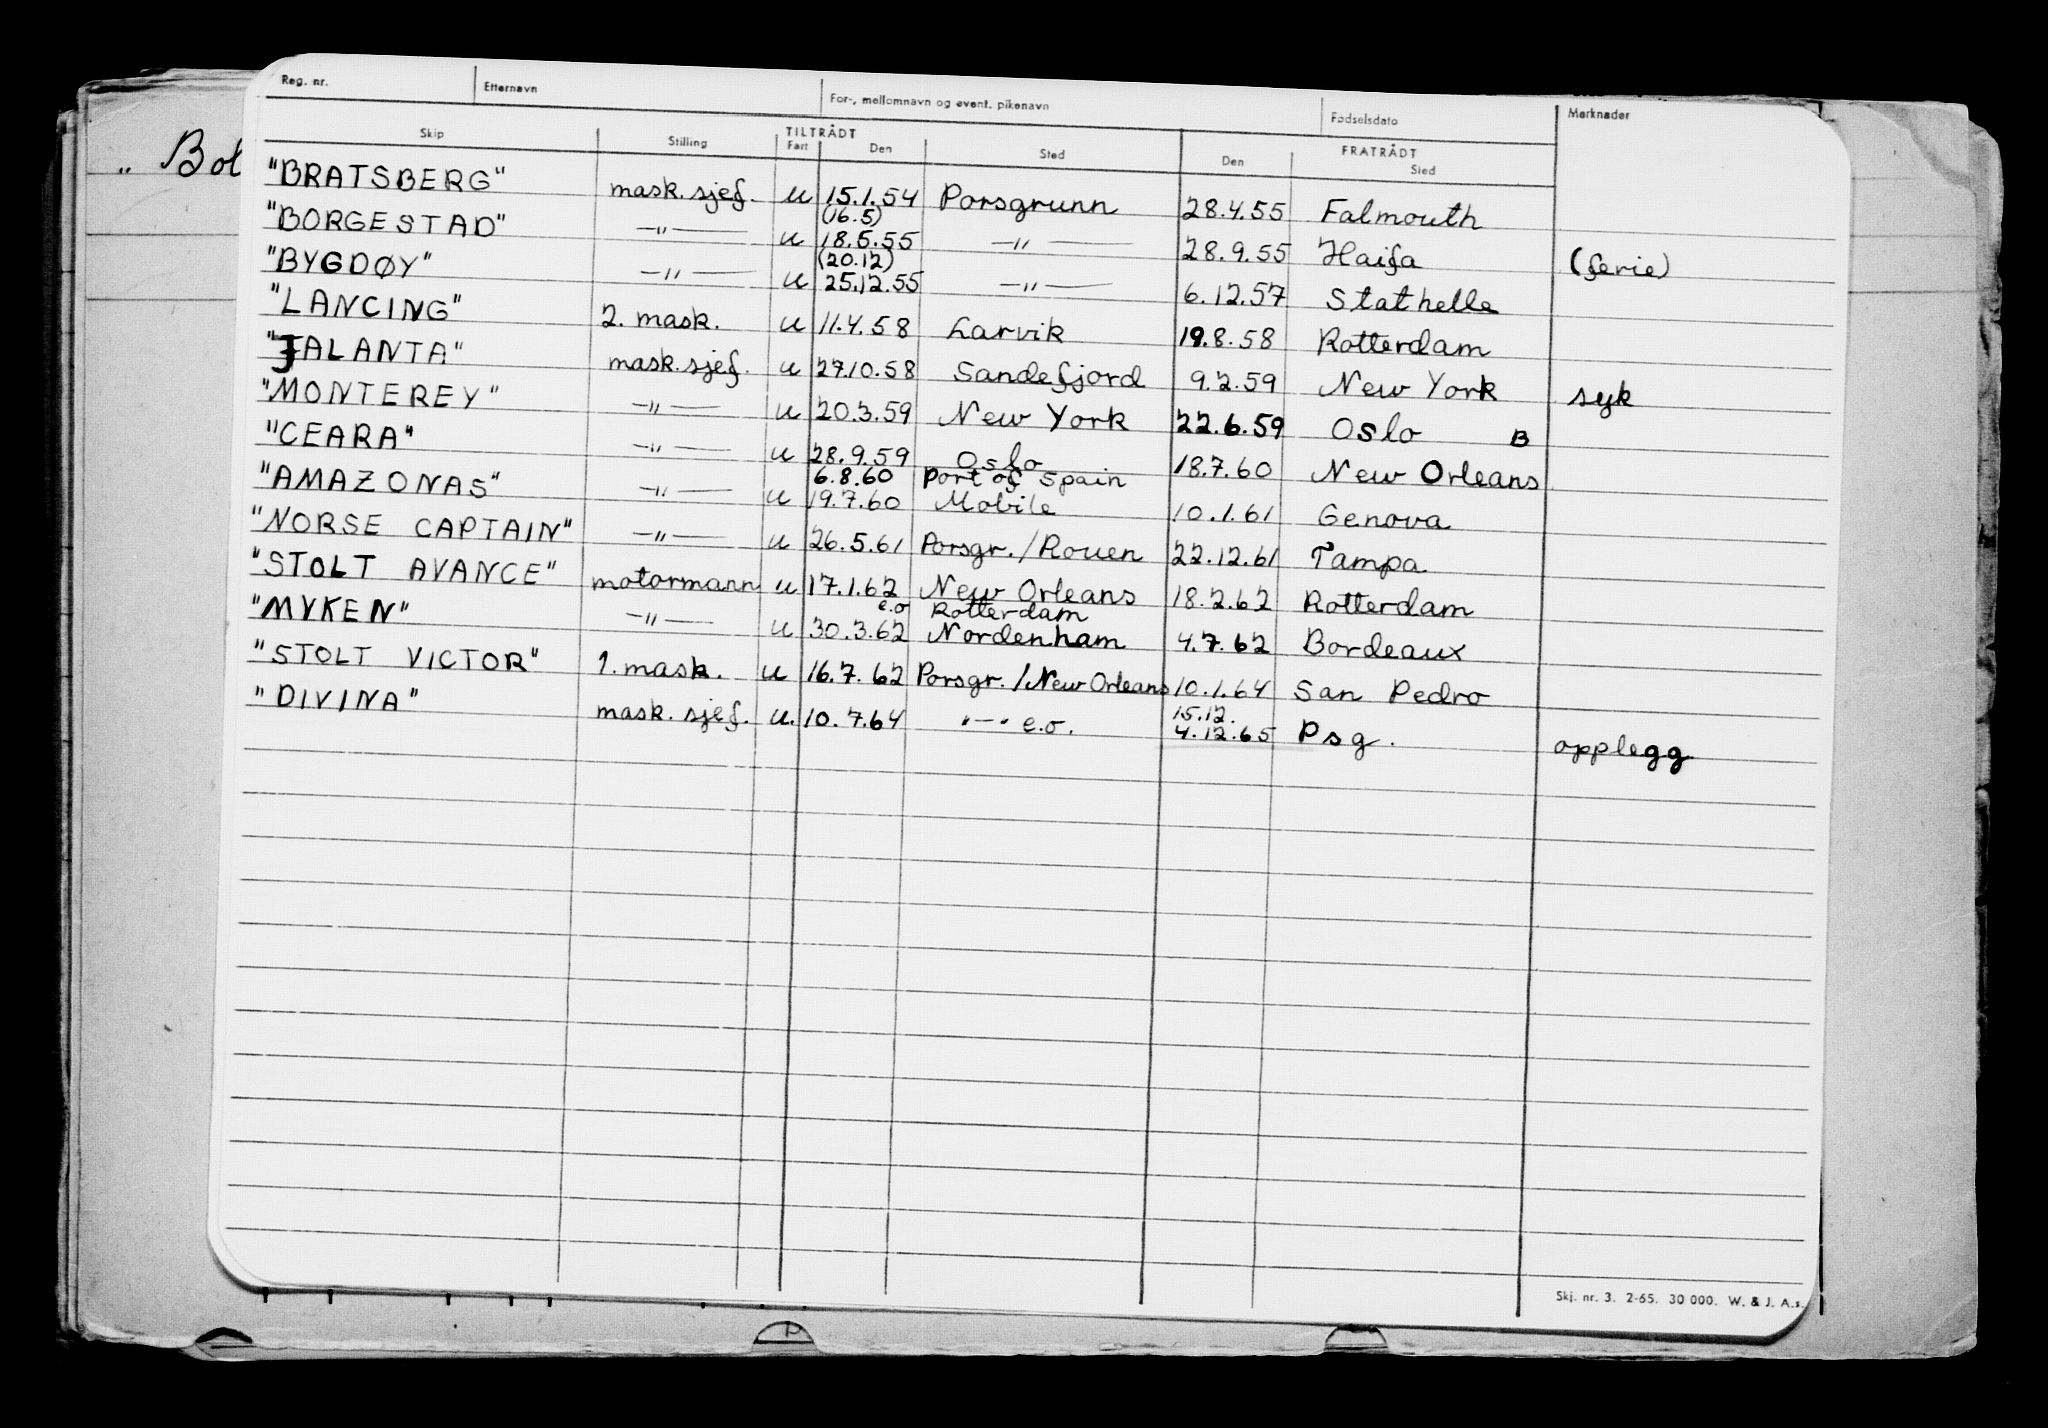 Reg. nr. Etternavn For-, mellomnavn og event. pikenavn Fødselsdato Merknader
Skip Stilling TILTRÅDT Fart Den Sted FRATRÅDT Den Sted
„ Bol
"BRATSBERG" mask.sjef. u 15.1.54 Porsgrunn 28.4.55 Falmouth
(16.5)
"BORGESTAD" —"— u 18.5.55 —"— 28.9.55 Haifa (ferie)
(20.12)
"BYGDØY" —"— u 25.12.55 —"— 6.12.57 Stathelle
"LANCING" 2. mask. u 11.4.58 Larvik 19.8.58 Rotterdam
"JALANTA" mask.sjef. u 27.10.58 Sandefjord 9.2.59 New York syk
"MONTEREY" —"— u 20.3.59 New York 22.6.59 Oslo B
"CEARA" —"— u 28.9.59 Oslo 18.7.60 New Orleans
6.8.60 Port of Spain
"AMAZONAS" —"— u 19.7.60 Mobile 10.1.61 Genova
"NORSE CAPTAIN" —"— u 26.5.61 Porsgr./Rouen 22.12.61 Tampa
"STOLT AVANCE" motormann u 17.1.62 New Orleans 18.2.62 Rotterdam
e.o Rotterdam
"MYKEN" —"— u 30.3.62 Nordenham 4.7.62 Bordeaux
"STOLT VICTOR" 1. mask. u 16.7.62 Porsgr./New Orleans 10.1.64 San Pedro
15.12.
"DIVINA" mask. sjef. u. 10.7.64 "—" e.o. 4.12.65 Psg. opplegg
Skj. nr. 3. 2-65. 30 000. W. & J. A.s.